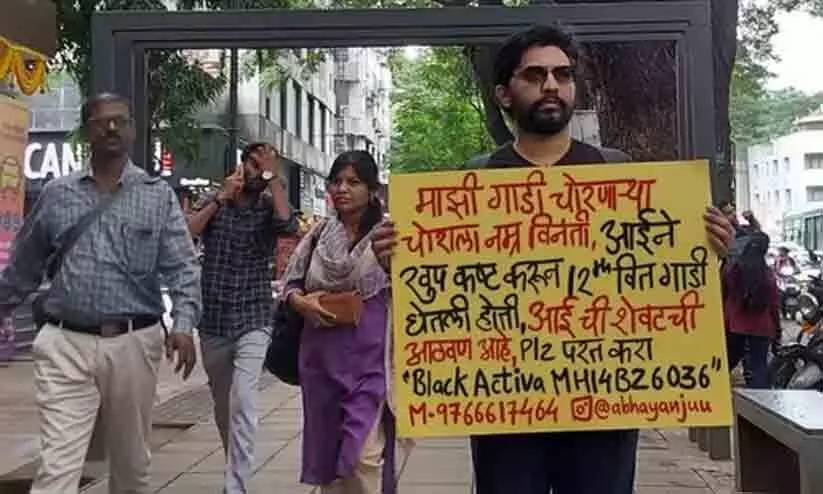 CAN
माझी गाडी चोरणाऱ्या
चोराला नम्र विनंती, आईने
खुप कष्ट करून 12th वित गाडी
घेतली होती, आई ची शेवटची
आठवण आहे, Plz परत करा
"Black Activa MH14BZ6036"
M-9766617464 @abhayanjuu